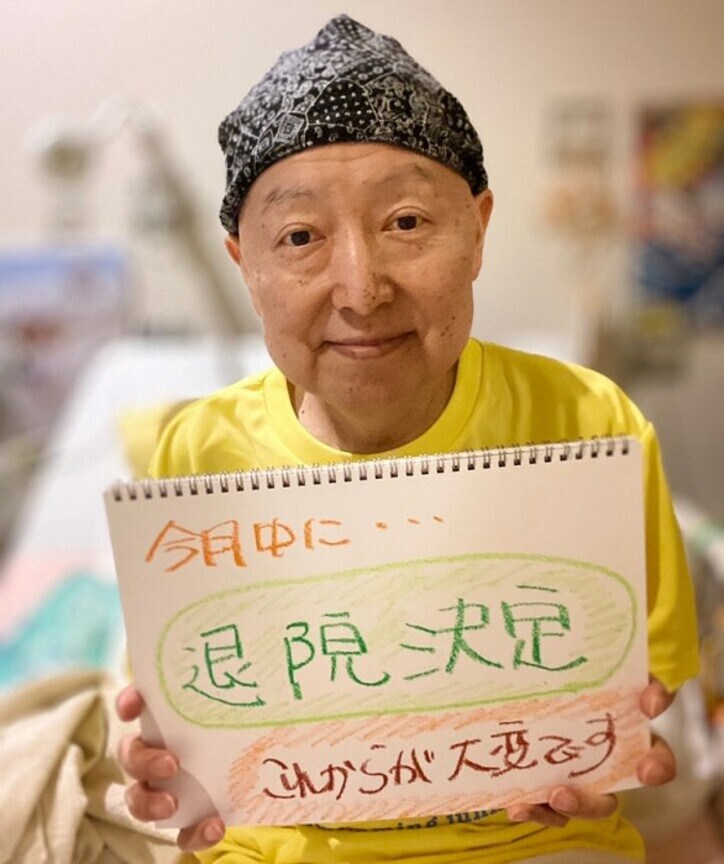 今月中に・・・
退院決定
これからが大変です